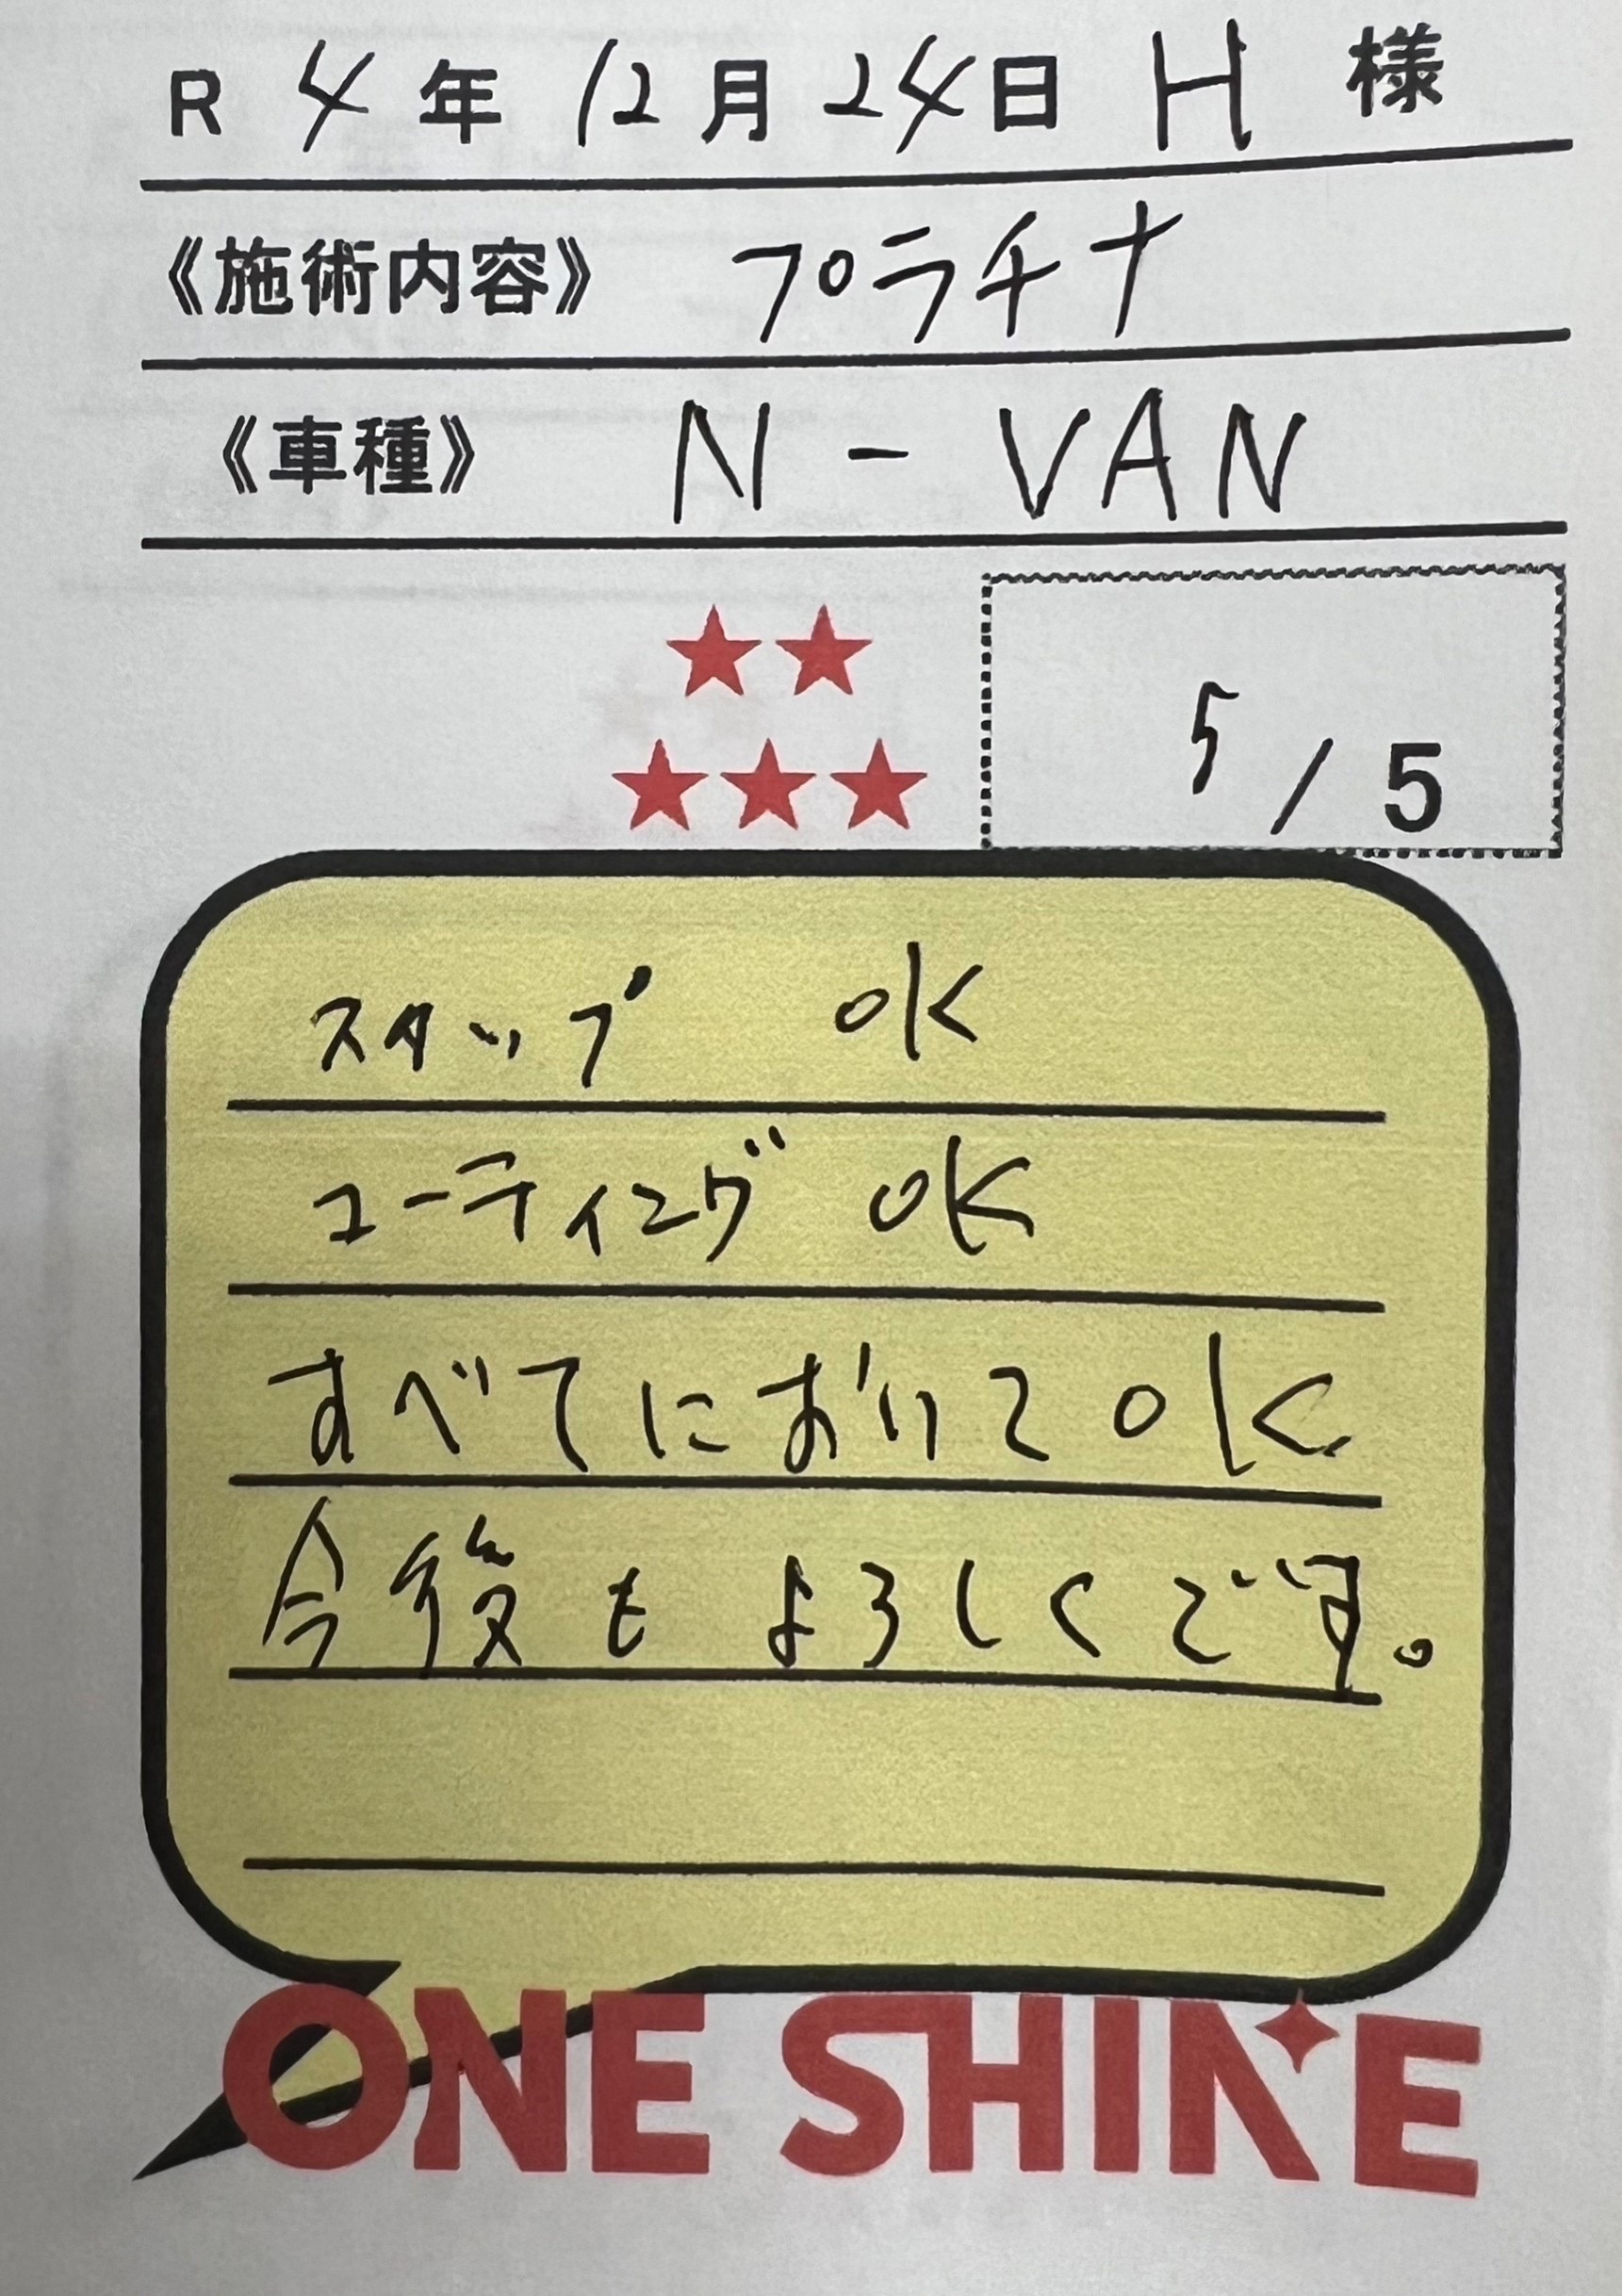 R 4年 12月 24日 H 様
《施術内容》 プラチナ
《車種》 N-VAN
5/5
スタップ OK
コーティング OK
すべてにおいてOK
今後もよろしくです。
ONE SHINE